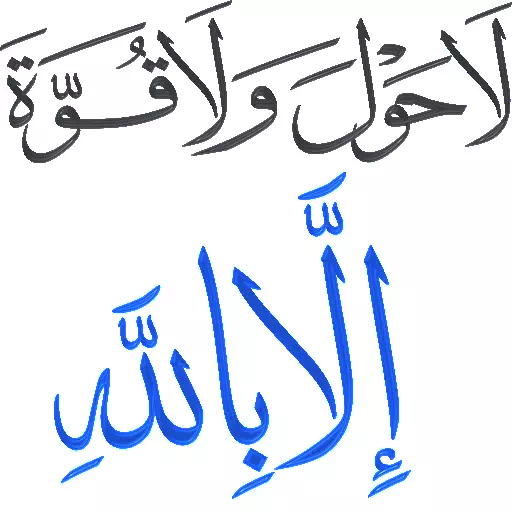 لَا حَوْلَ وَلَا قُوَّةَ
إِلَّا بِاللَّهِ